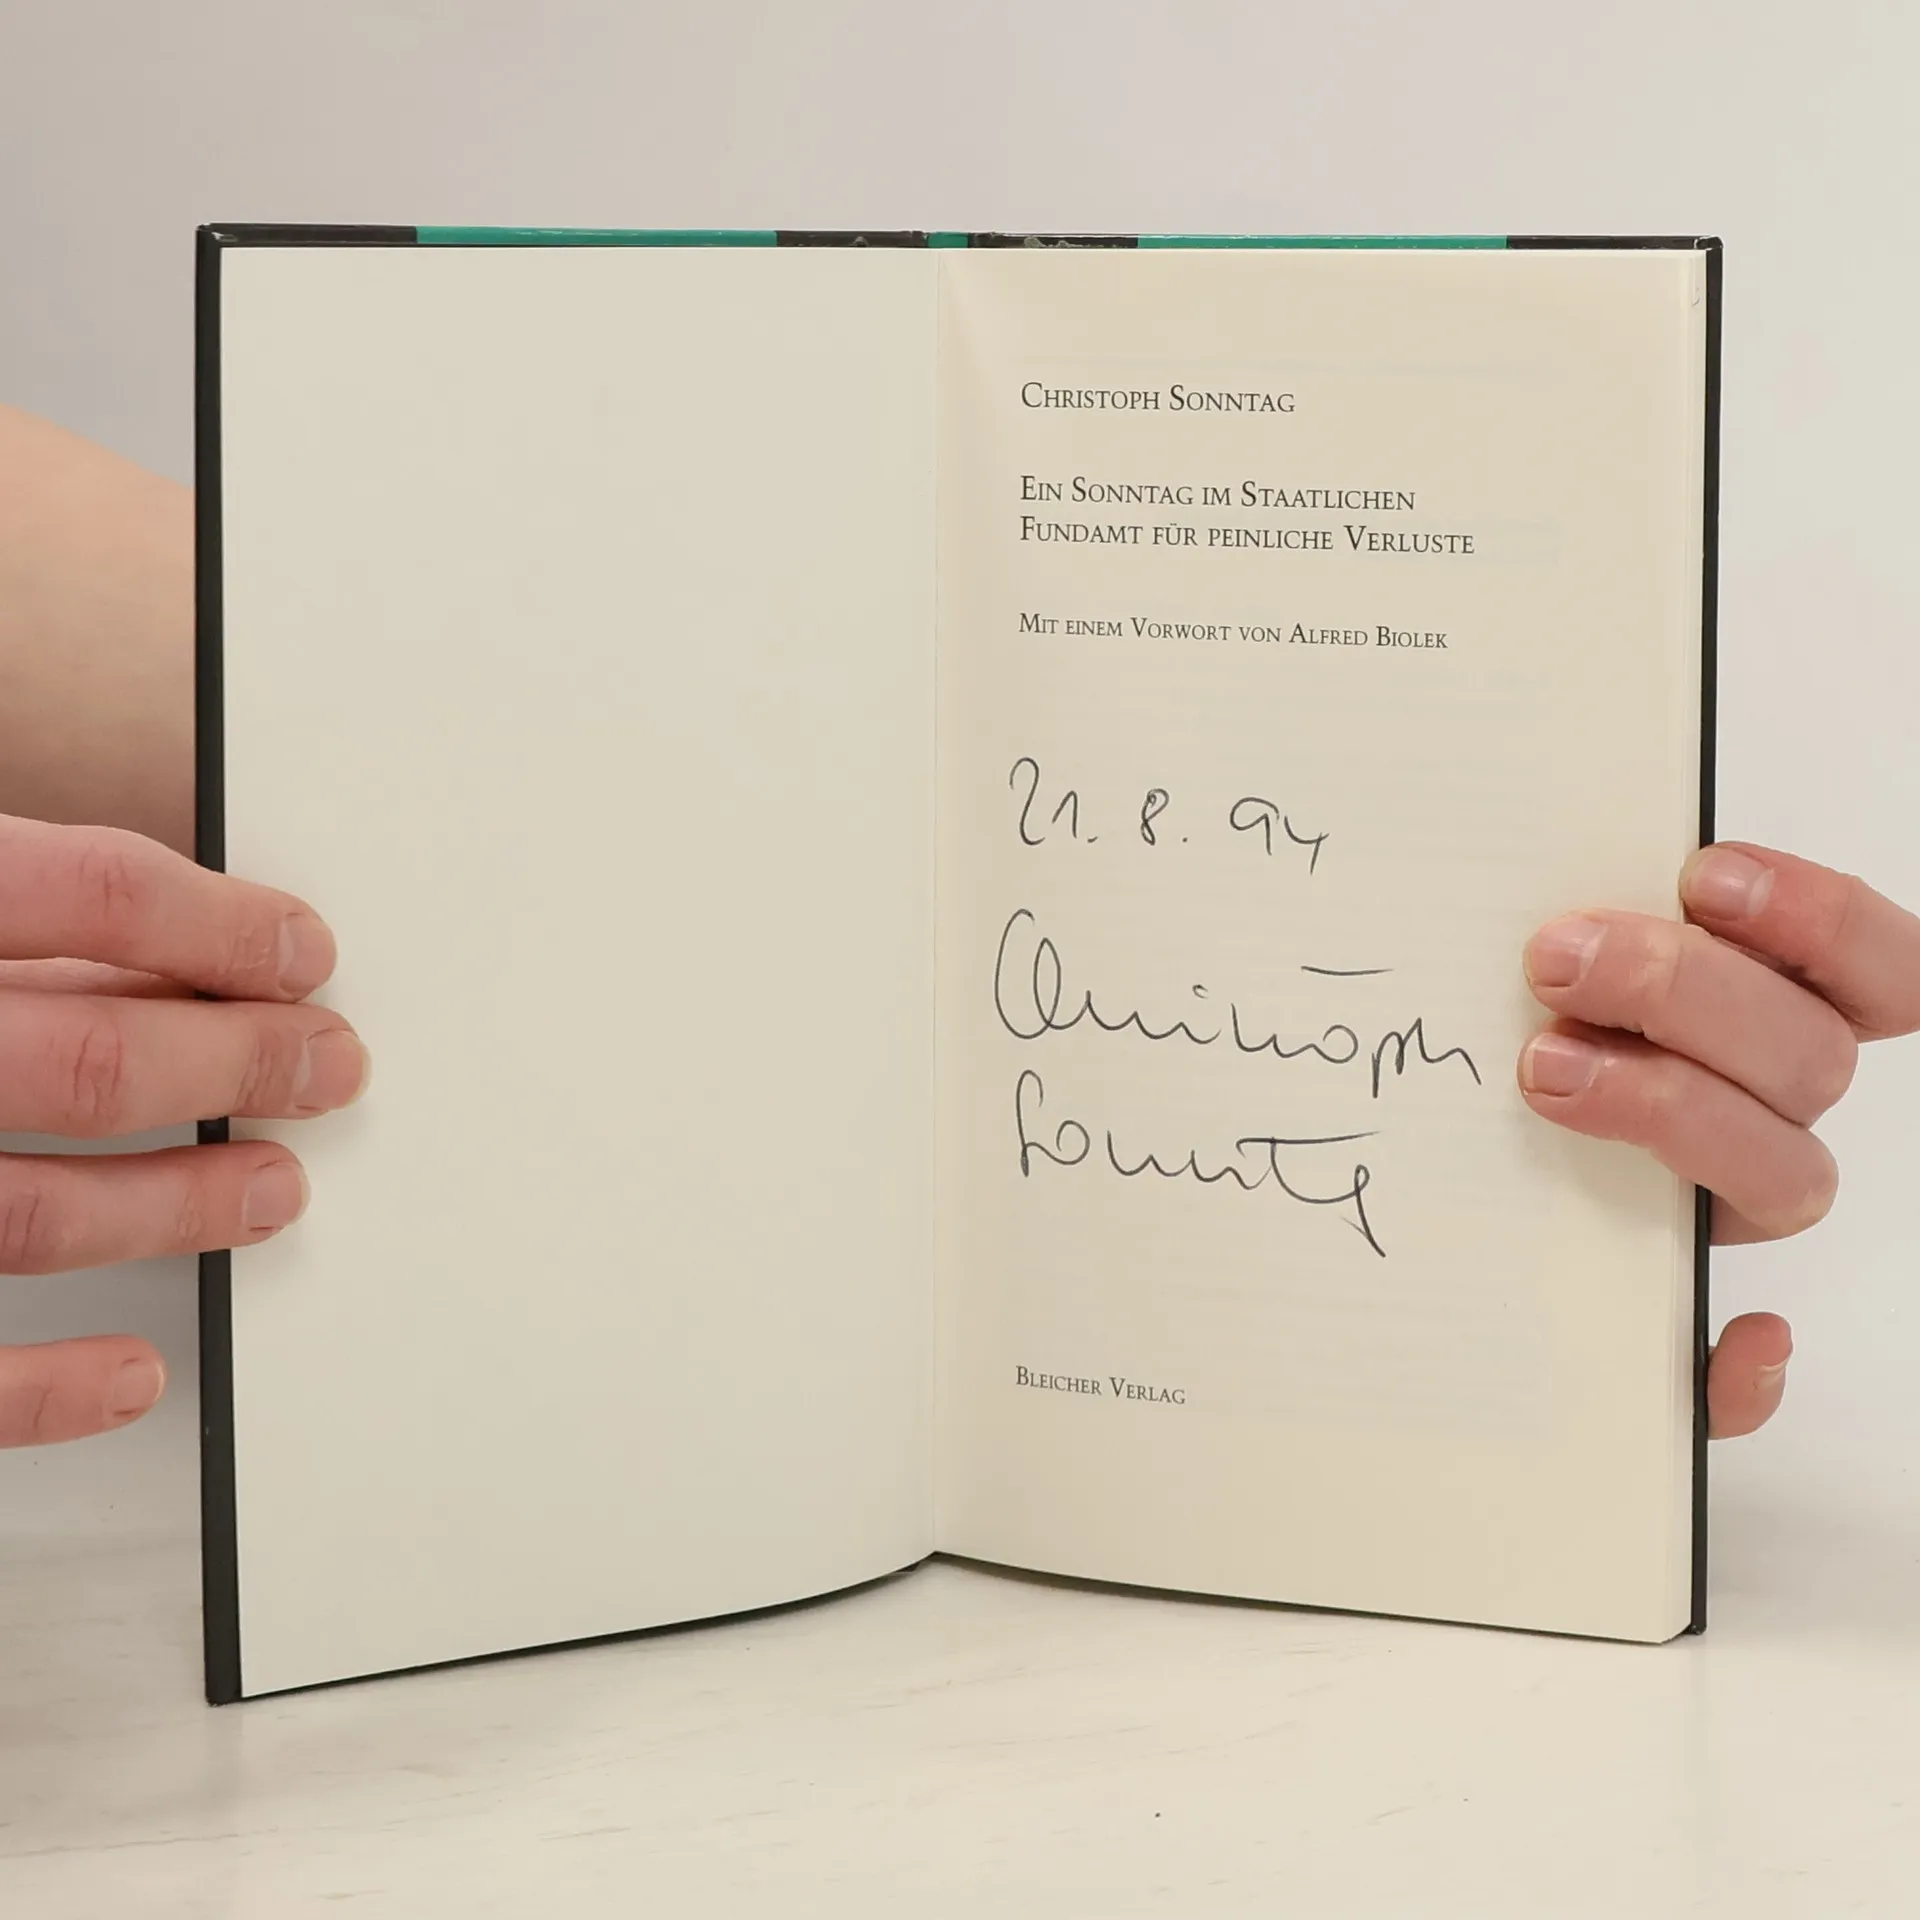 CHRISTOPH SONNTAG
EIN SONNTAG IM STAATLICHEN
FUNDAMT FÜR PEINLICHE VERLUSTE
MIT EINEM VORWORT VON ALFRED BIOLEK
21. 8. 94
Christoph
Sonntag
BLEICHER VERLAG